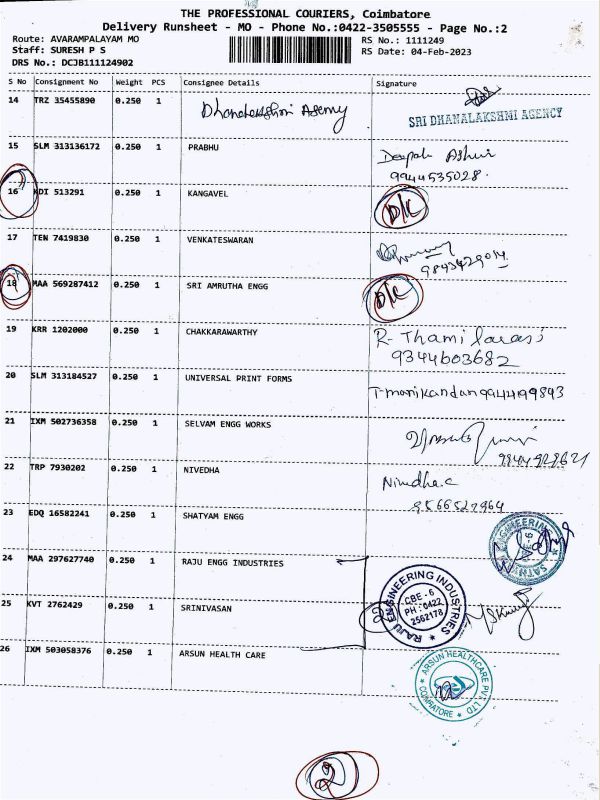 THE PROFESSIONAL COURIERS, Coimbatore
Delivery Runsheet - MO - Phone No.:0422-3505555 - Page No.:2
Route: AVARAMPALAYAM MO RS No.: 1111249
Staff: SURESH P S RS Date: 04-Feb-2023
DRS No.: DCJB111124902
S No Consignment No Weight PCS Consignee Details Signature
14 TRZ 35455890 0.250 1 Dhanalekshmi Agency
SRI DHANALAKSHMI AGENCY
15 SLM 313136172 0.250 1 PRABHU
9944535028.
16 KDI 513291 0.250 1 KANGAVEL D/L
17 TEN 7419830 0.250 1 VENKATESWARAN
18 MAA 569287412 0.250 1 SRI AMRUTHA ENGG D/L
19 KRR 1202000 0.250 1 CHAKKARAWARTHY R- Thamilarasi
9344603682
20 SLM 313184527 0.250 1 UNIVERSAL PRINT FORMS T-manikandan
21 IXM 502736358 0.250 1 SELVAM ENGG WORKS
22 TRP 7930202 0.250 1 NIVEDHA Nivedha.c
9566527964
23 EDQ 16582241 0.250 1 SHATYAM ENGG
ENGINEERING
24 MAA 297627740 0.250 1 RAJU ENGG INDUSTRIES
RAJU ENGINEERING INDUSTRIES
CBE - 6
PH : 0422
2562178
25 KVT 2762429 0.250 1 SRINIVASAN 2
26 IXM 503058376 0.250 1 ARSUN HEALTH CARE
ARSUN HEALTHCARE PVT LTD
COIMBATORE
2